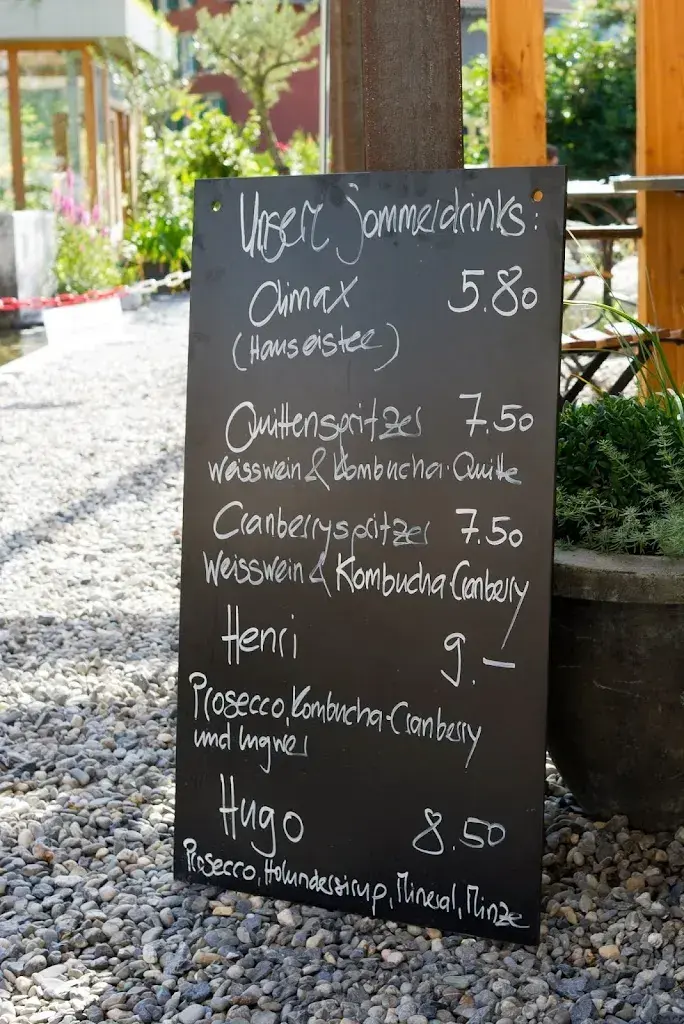 Unsere Sommerdrinks:
Climax 5.80
(Hauseistee)
Quittenspritzer 7.50
Weisswein & Kombucha-Quitte
Cranberryspritzer 7.50
Weisswein & Kombucha Cranberry
Henri 9.–
Prosecco, Kombucha-Cranberry
und Ingwer
Hugo 8.50
Prosecco, Holundersirup, Mineral, Minze